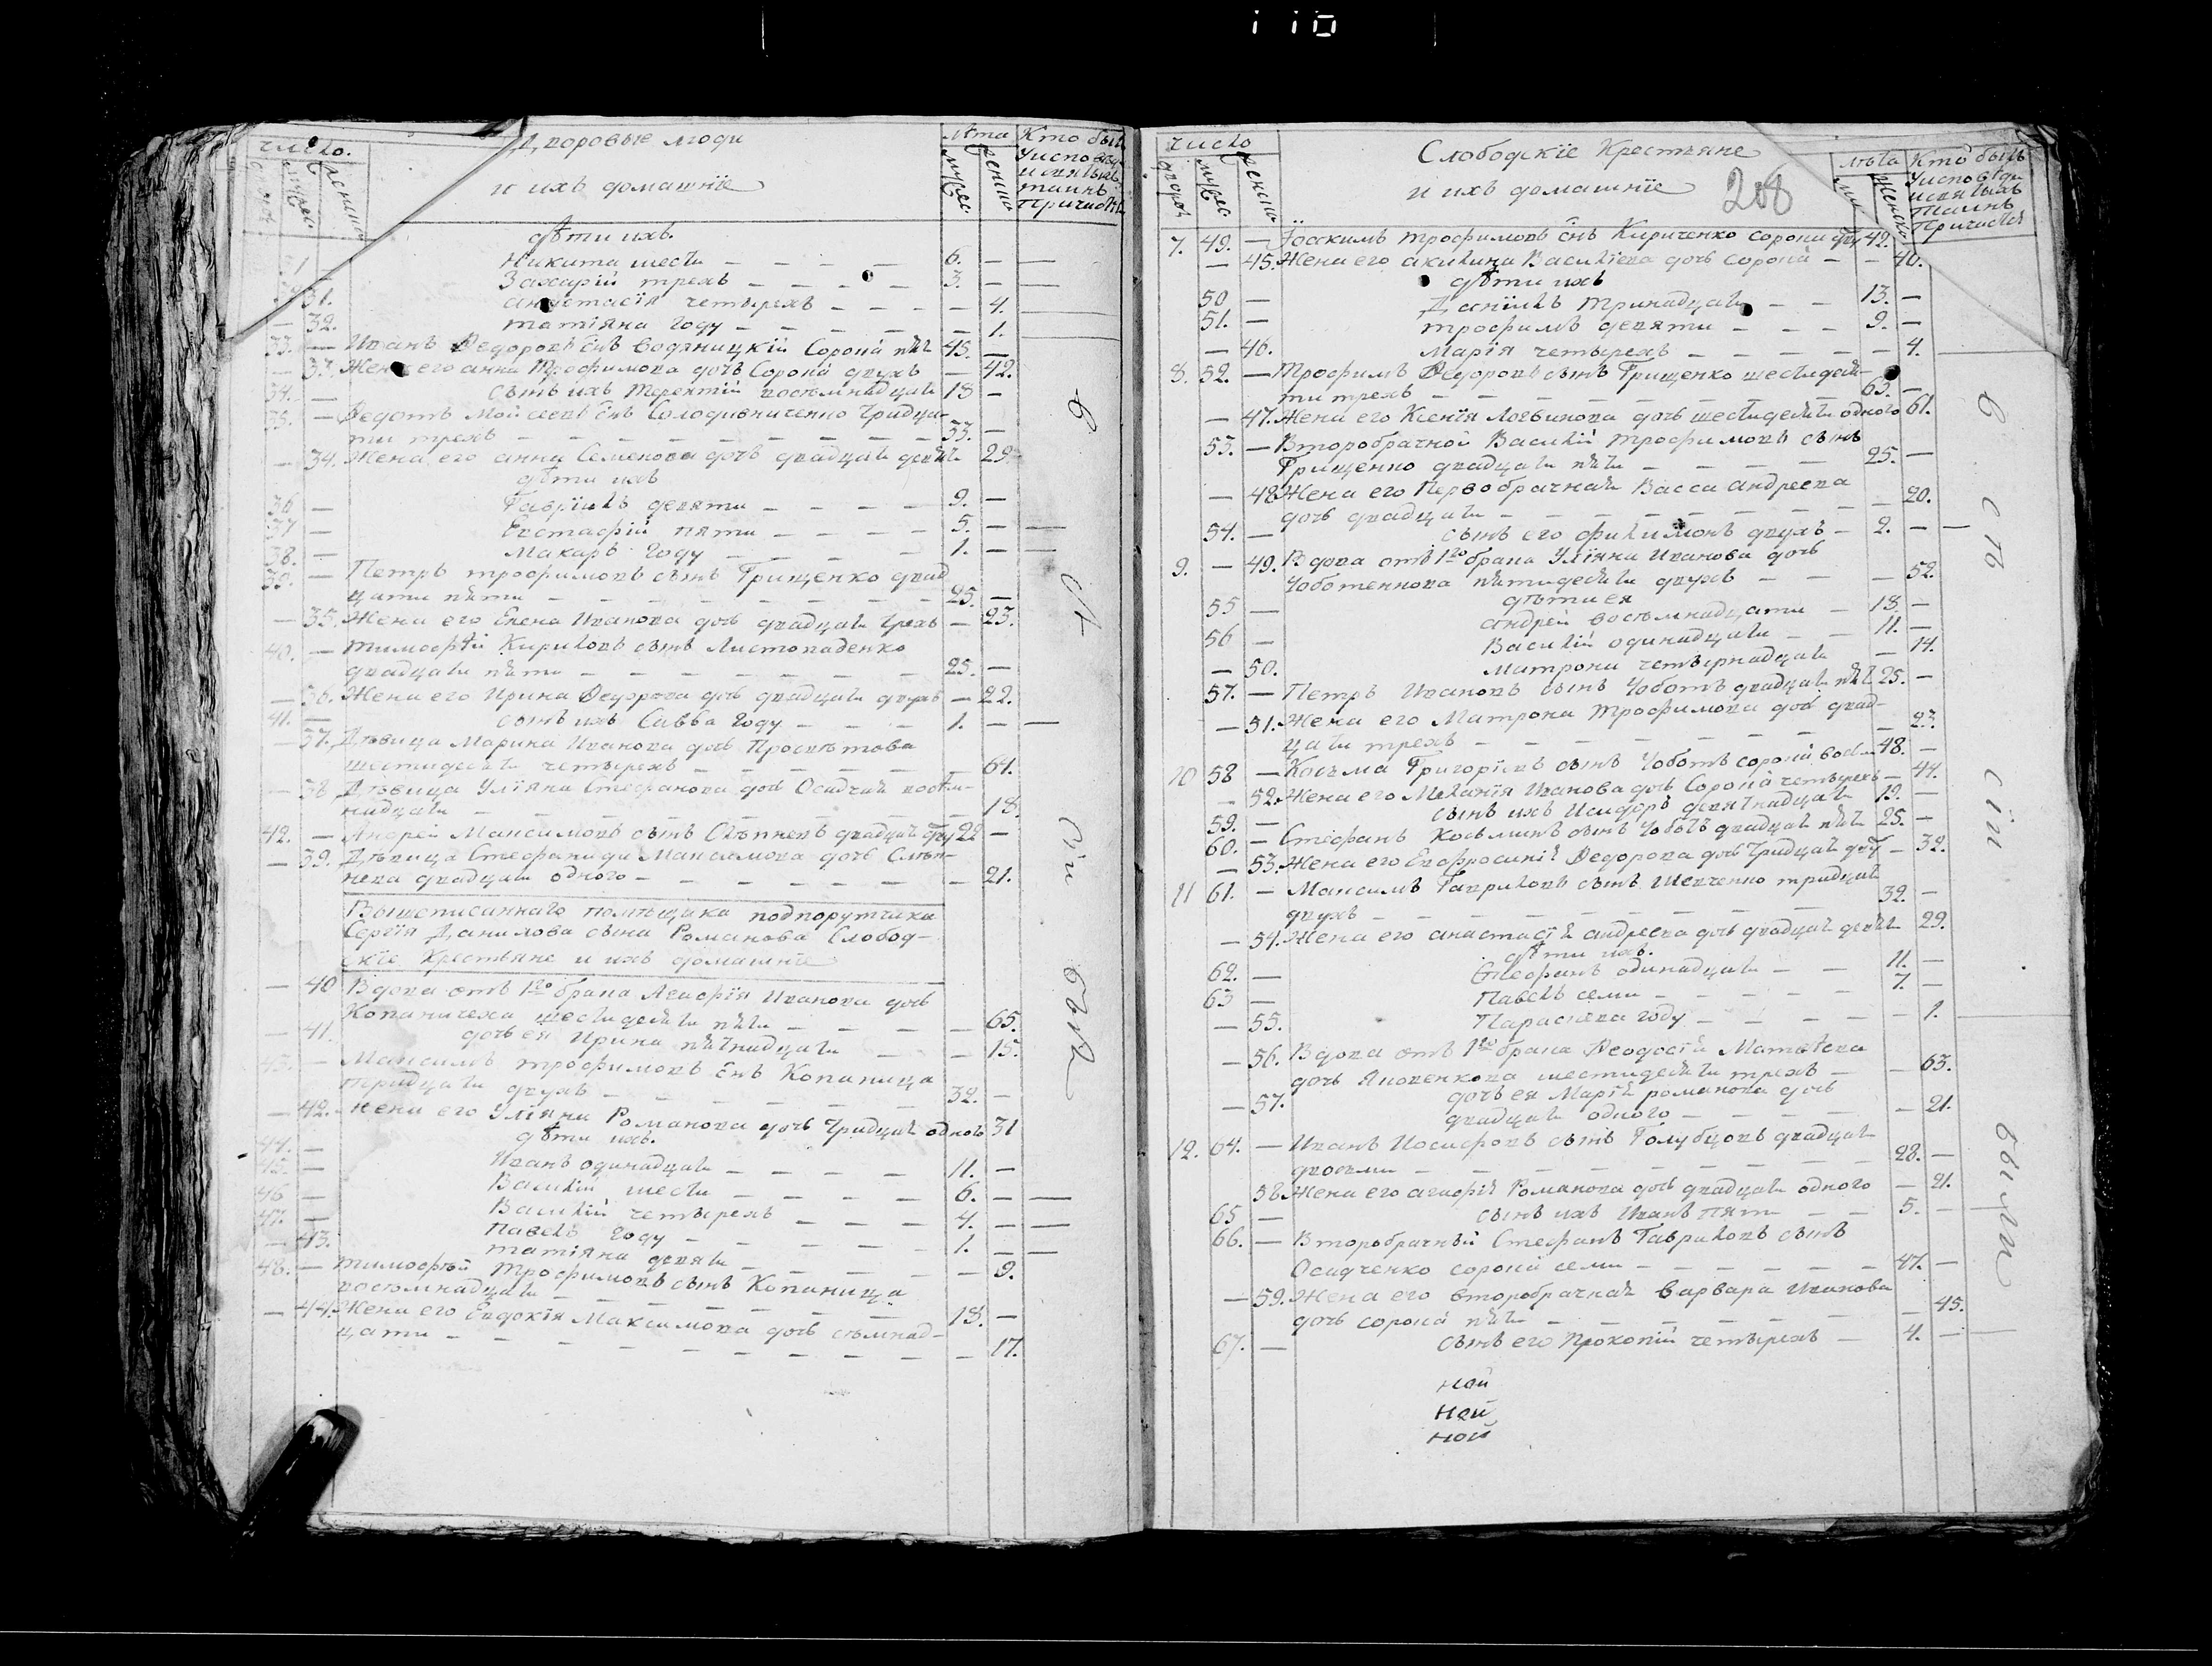 число.
Дворовые люди
и ихъ домашнїе
лѣта
мужес.
женска
Кто былъ
У испове
и святыхъ
таинъ
Причаст
дѣти ихъ.
Никита шести — — — — 6. — —
Захарїй трехъ — — — 3. — —
31. анастасїя четырехъ — — — — 4.
— 32. татїяна году — — — — — 1.
33. — Иванъ Ѳедоровъ снъ Водяницкїй Сорока пяти 45. —
— 33. Жена его анна Трофимова дочь Сорока двухъ — 42.
34. — сынъ ихъ Терентїй восемнадцати 18 —
35. — Ѳедотъ Мойсеевъ снъ Солодивниченко тридца-
ти трехъ — — — — — — — — 33. —
— 34. Жена его анна Семенова дочь двадцати девяти 29.
дѣти ихъ
36 — Гаврїилъ девяти — — — — 9. —
37 — Евстафїй пяти — — — — 5. — —
38. — Макаръ году — — — — 1. — —
39. — Петръ трофимовъ сынъ Грищенко двад
цати пяти — — — — — — — — 25. —
— 35. Жена его Елена Иванова дочь двадцати трехъ — 23.
40. — тимофѣй Кириловъ сынъ Листопаденко
двадцати пяти — — — — — — 25. —
— 36. Жена его Ирина Ѳедорова дочь двадцати двухъ — 22.
41. — сынъ ихъ Савва году — — — 1. — —
— 37. Дѣвица Марина Иванова дочь Просвѣтова
шестидесяти четырехъ — — — — — 64.
— 38 Дѣвица Улїяна Стефанова дочь Осадчая восем-
надцати — — — — — — — — 18.
42. — Андрей Максимовъ сынъ Слѣпневъ двадцати дву 22 —
— 39. Дѣвица Стефанида Максимова дочь Слѣп-
нева двадцати одного — — — — — — — 21.
Вышеписаннаго помѣщика подпорутчика
Сергїя Данилова сына Романова Слобод-
скїе Крестьяне и ихъ домашнїе
— 40 Вдова отъ 1го брака Агафїя Иванова дочь
Копаничеха шестидесяти пяти — — — — — 65.
— 41. дочь ея Ирина пятнадцати — — 15.
43. — Максимъ трофимовъ снъ Копаница
тридцати двухъ — — — — — — — 32. —
— 42. Жена его Улїяна Романова дочь тридцати одного 31
дѣти ихъ.
44. — Иванъ одинадцати — — — — 11. —
45 — Василїй шести — — — — 6. — —
46 — Василїй четырехъ — — — 4. — —
47. — Павелъ году — — — — — 1. — —
— 43. татїяна девяти — — — — — 9.
48. — тимофѣй Трофимовъ сынъ Копаница
восемнадцати — — — — — — — 18. —
— 44. Жена его Евдокїя Максимова дочь семнад-
цати — — — — — — — — — — 17.
в
сѣ
сїи
бы
число
дворов
мужес.
женска
Слободскїе Крестьяне
и ихъ домашнїе
208
лѣта
Женска
Кто былъ
У исповѣди
и святыхъ
Таинъ
Причастія
7. 49. — Іоакимъ трофимовъ снъ Кириченко сорока дву 42.
— 45. Жена его акилина Василїева дочь сорока — — 40.
дѣти ихъ
50 — Данїилъ тринадцати — — 13. —
51. — трофимъ девяти — — — 9. —
— 46. Марїя четырехъ — — — — — 4.
8. 52. — Трофимъ Ѳедоровъ сынъ Грищенко шестидеся-
ти трехъ — — — — — — — 63. —
— 47. Жена его Ксенїя Логвинова дочь шестидесяти одного 61.
53. — Второбрачной Василїй трофимовъ сынъ
Грищенко двадцати пяти — — — — 25. —
— 48 Жена его Первобрачная Васса андреева
дочь двадцати — — — — — — — — 20.
54. — сынъ его филимонъ двухъ — 2. — —
9. — 49. Вдова отъ 1го брака Улїяна Иванова дочь
Чоботенкова пятидесяти двухъ — — — 52.
дѣти ея
55 — андрей восемнадцати — 18. —
56 — Василїй одинадцати — — 11. —
— 50. Матрона четырнадцати — 14.
57. — Петръ Ивановъ сынъ Чоботъ двадцати пяти 25. —
— 51. Жена его Матрона Трофимова дочь двад-
цати трехъ — — — — — — — — 23.
10 58 — Косьма Григорїевъ сынъ Чоботъ сорока восьм 48. —
— 52. Жена его Меланїя Иванова дочь Сорока четырехъ — 44.
59. — сынъ ихъ Исидоръ девятнадцати 19. —
60. — Стефанъ Косьминъ сынъ Чоботъ двадцати пяти 25. —
— 53. Жена его Евфросинїя Ѳедорова дочь тридцати дву — 32.
11 61. — Максимъ Гавриловъ сынъ Шевченко тридцати
двухъ — — — — — — — — — 32. —
— 54. Жена его анастасїя андреева дочь двадцати девяти 29.
дѣти ихъ.
62. — Стефанъ одинадцати — — 11. —
63 — Павелъ семи — — — — 7. —
— 55. Параскева году — — — — — 1.
— 56. Вдова отъ 1го брака Ѳеодосїя Матвѣева
дочь Яковенкова шестидесяти трехъ — — 63.
— 57. дочь ея Марїя романова дочь
двадцати одного — — — — — 21.
12. 64. — Иванъ Иосифовъ сынъ Голубцовъ двадцати
восьми — — — — — — — — 28. —
58. Жена его агафїя Романова дочь двадцати одного — 21.
65 — сынъ ихъ Иванъ пяти — — 5. —
66. — Второбрачный Стефанъ Гавриловъ сынъ
Осадченко сорока семи — — — — — — 47. —
— 59. Жена его второбрачная Варвара Иванова
дочь сорока пяти — — — — — — — — 45.
67. — сынъ его Прокопїй четырехъ — 4. —
ной
ной
ной
в
сѣ
сїи
были